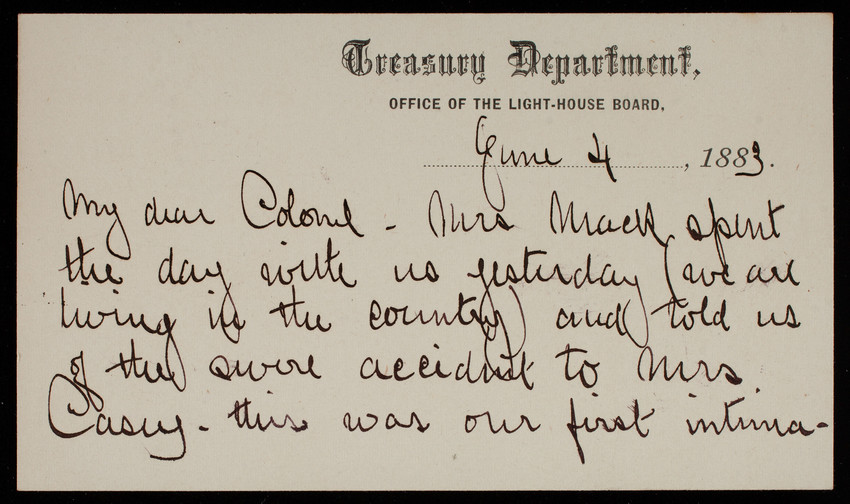 Treasury Department,
OFFICE OF THE LIGHT-HOUSE BOARD,
June 4, 1883.
My dear Colonel - Mrs Mack spent
the day with us yesterday (we are
living in the country) and told us
of the severe accident to Mrs
Casey - this was our first intima-